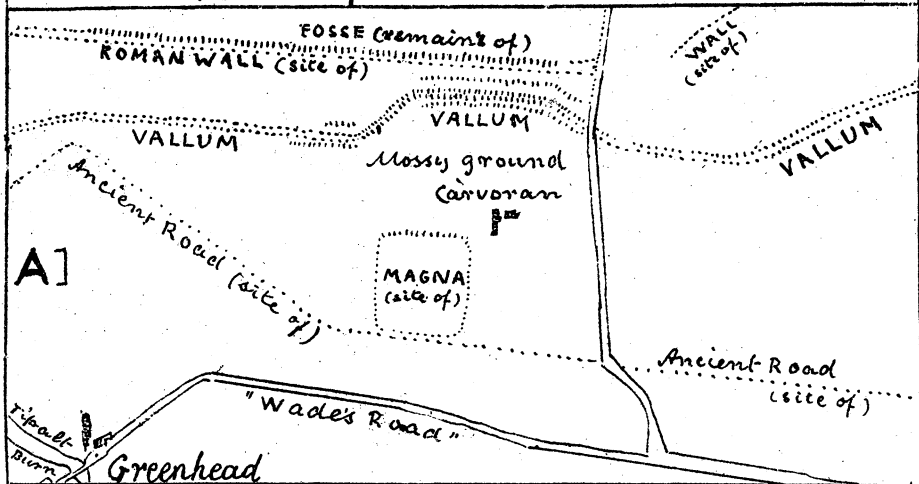 FOSSE (remains of)
ROMAN WALL (site of)
WALL
(site of)
VALLUM
VALLUM
VALLUM
Mossy ground
Carvoran
Ancient Road (site of)
A]
MAGNA
(site of)
Ancient Road
(site of)
"Wade's Road"
Tipalt
Burn
Greenhead